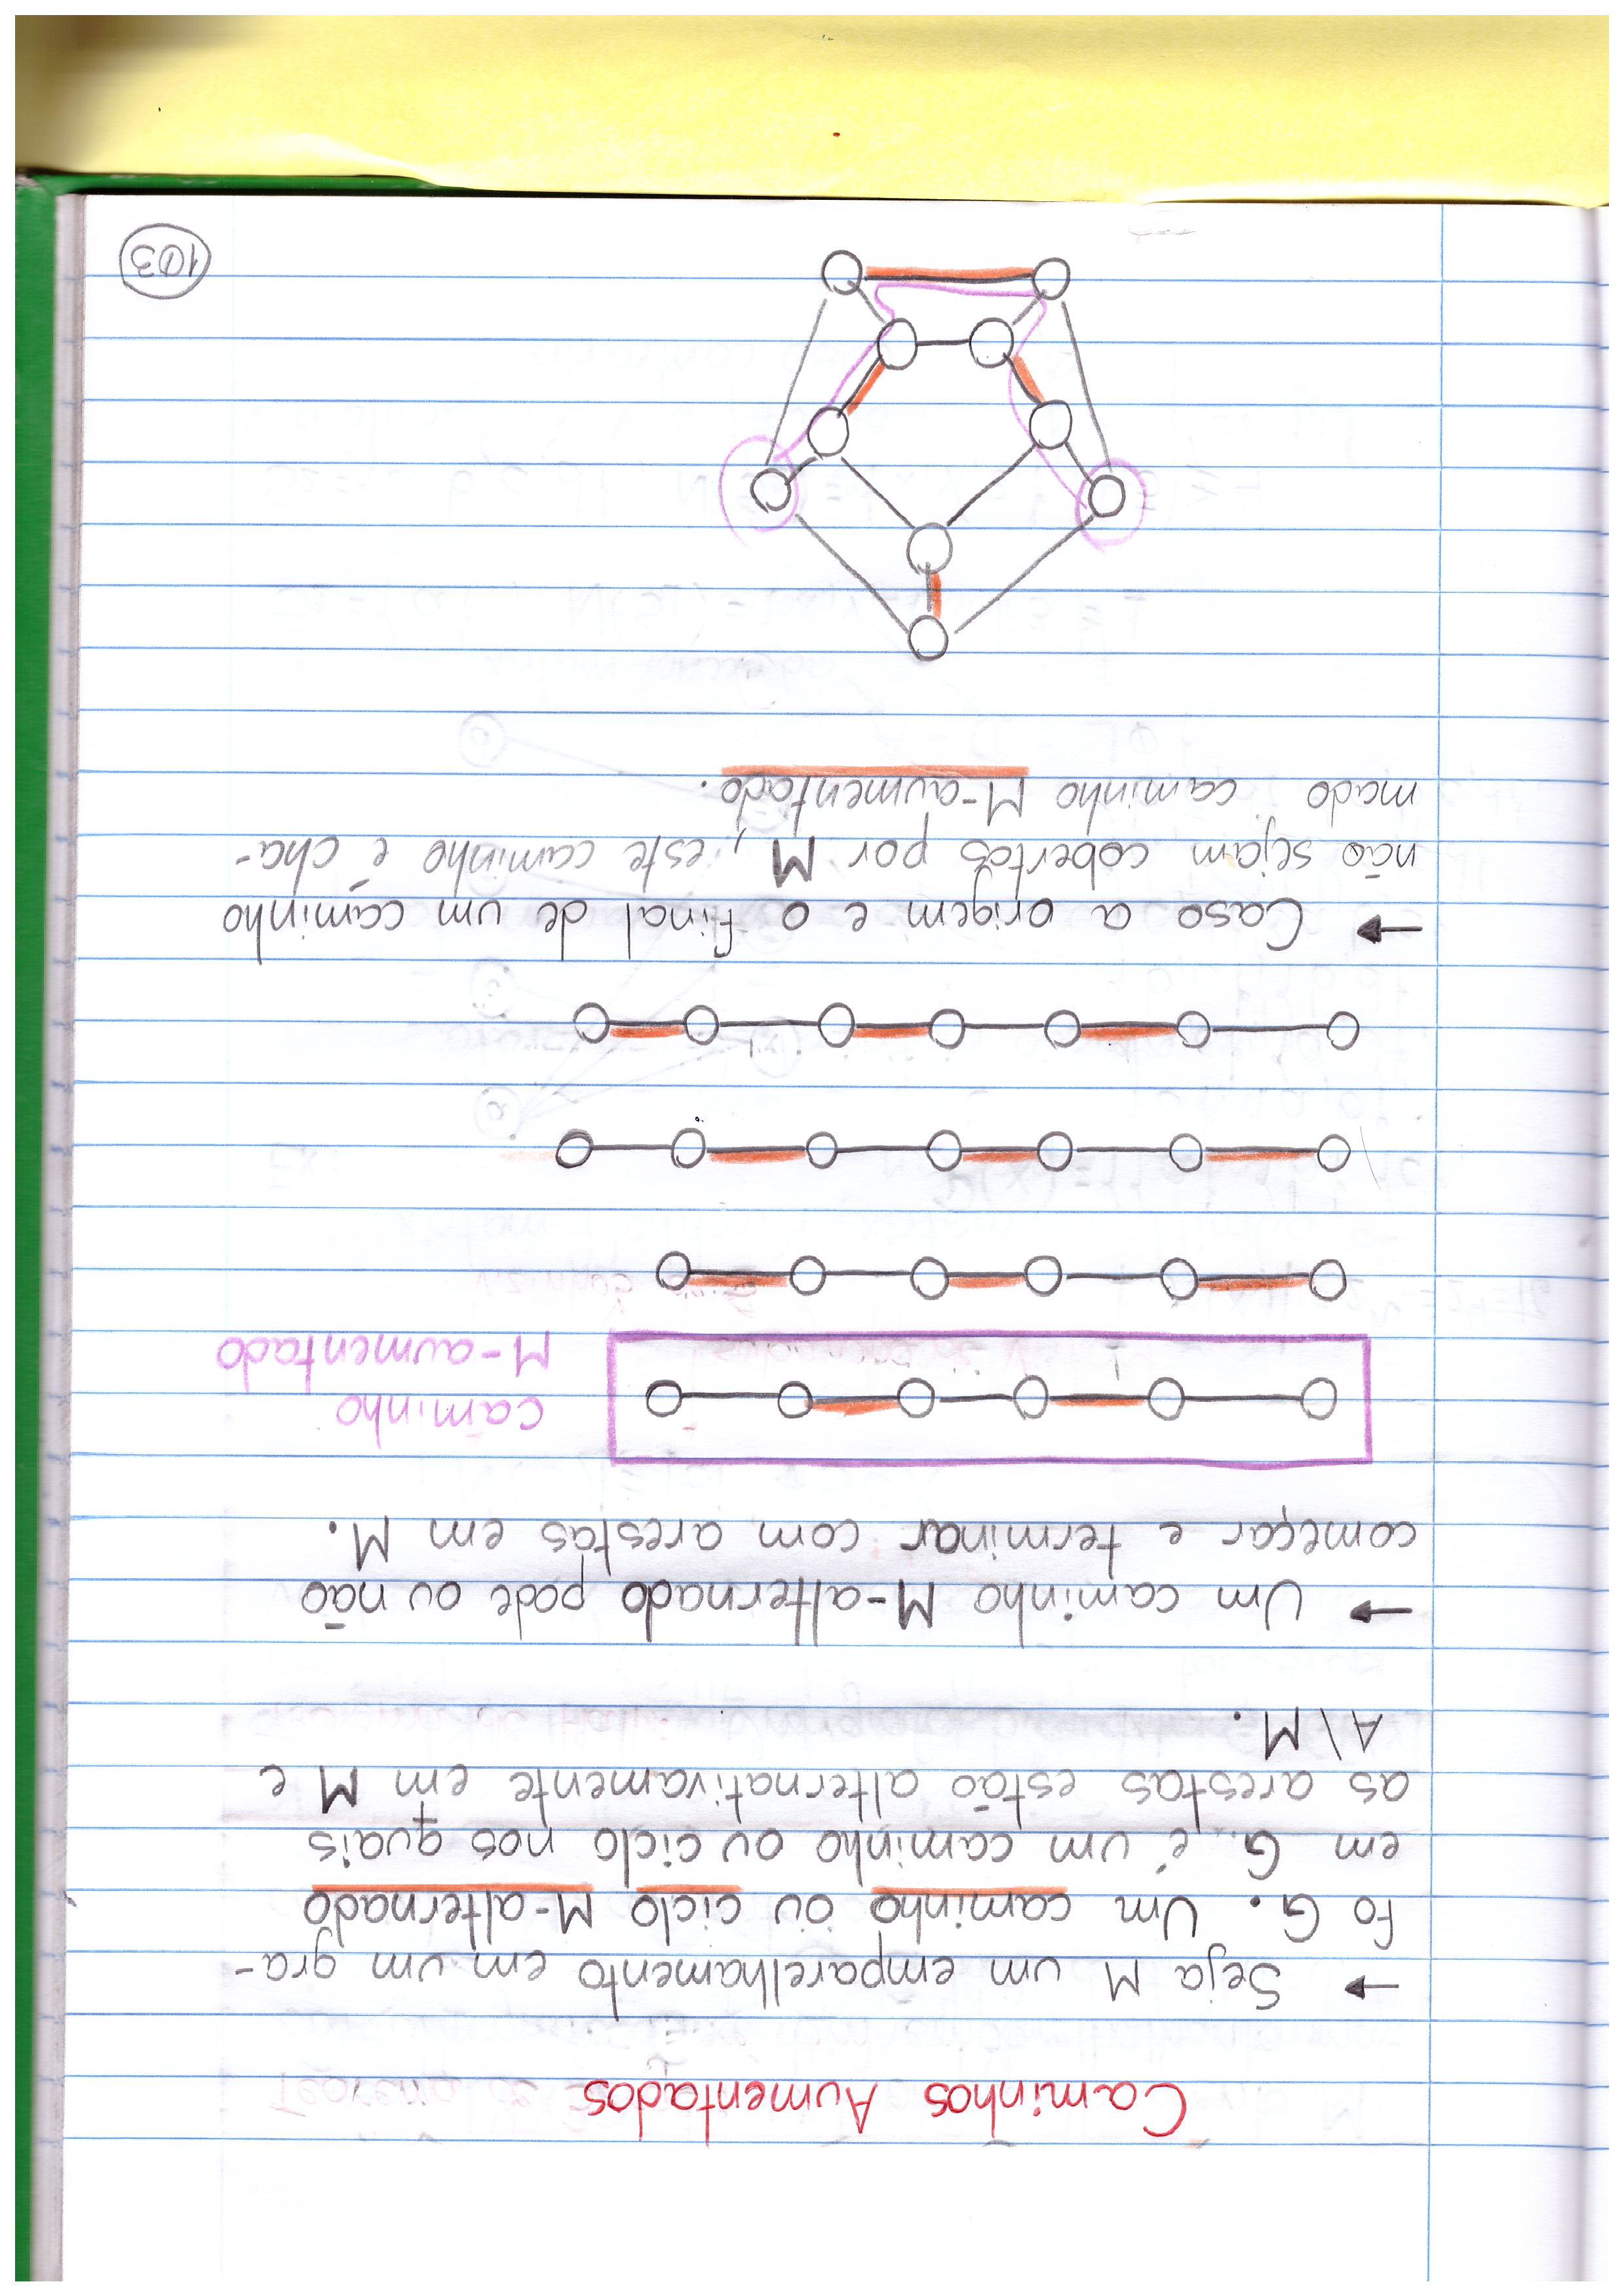 Caminhos Aumentados
→ Seja M um emparelhamento em um gra-
fo G. Um caminho ou ciclo M-alternado
em G é um caminho ou ciclo nos quais
as arestas estão alternativamente em M e
A\M.
→ Um caminho M-alternado pode ou não
começar e terminar com arestas em M.
caminho
M-aumentado
→ Caso a origem e o final de um caminho
não sejam cobertos por M, este caminho é cha-
mado caminho M-aumentado.
103